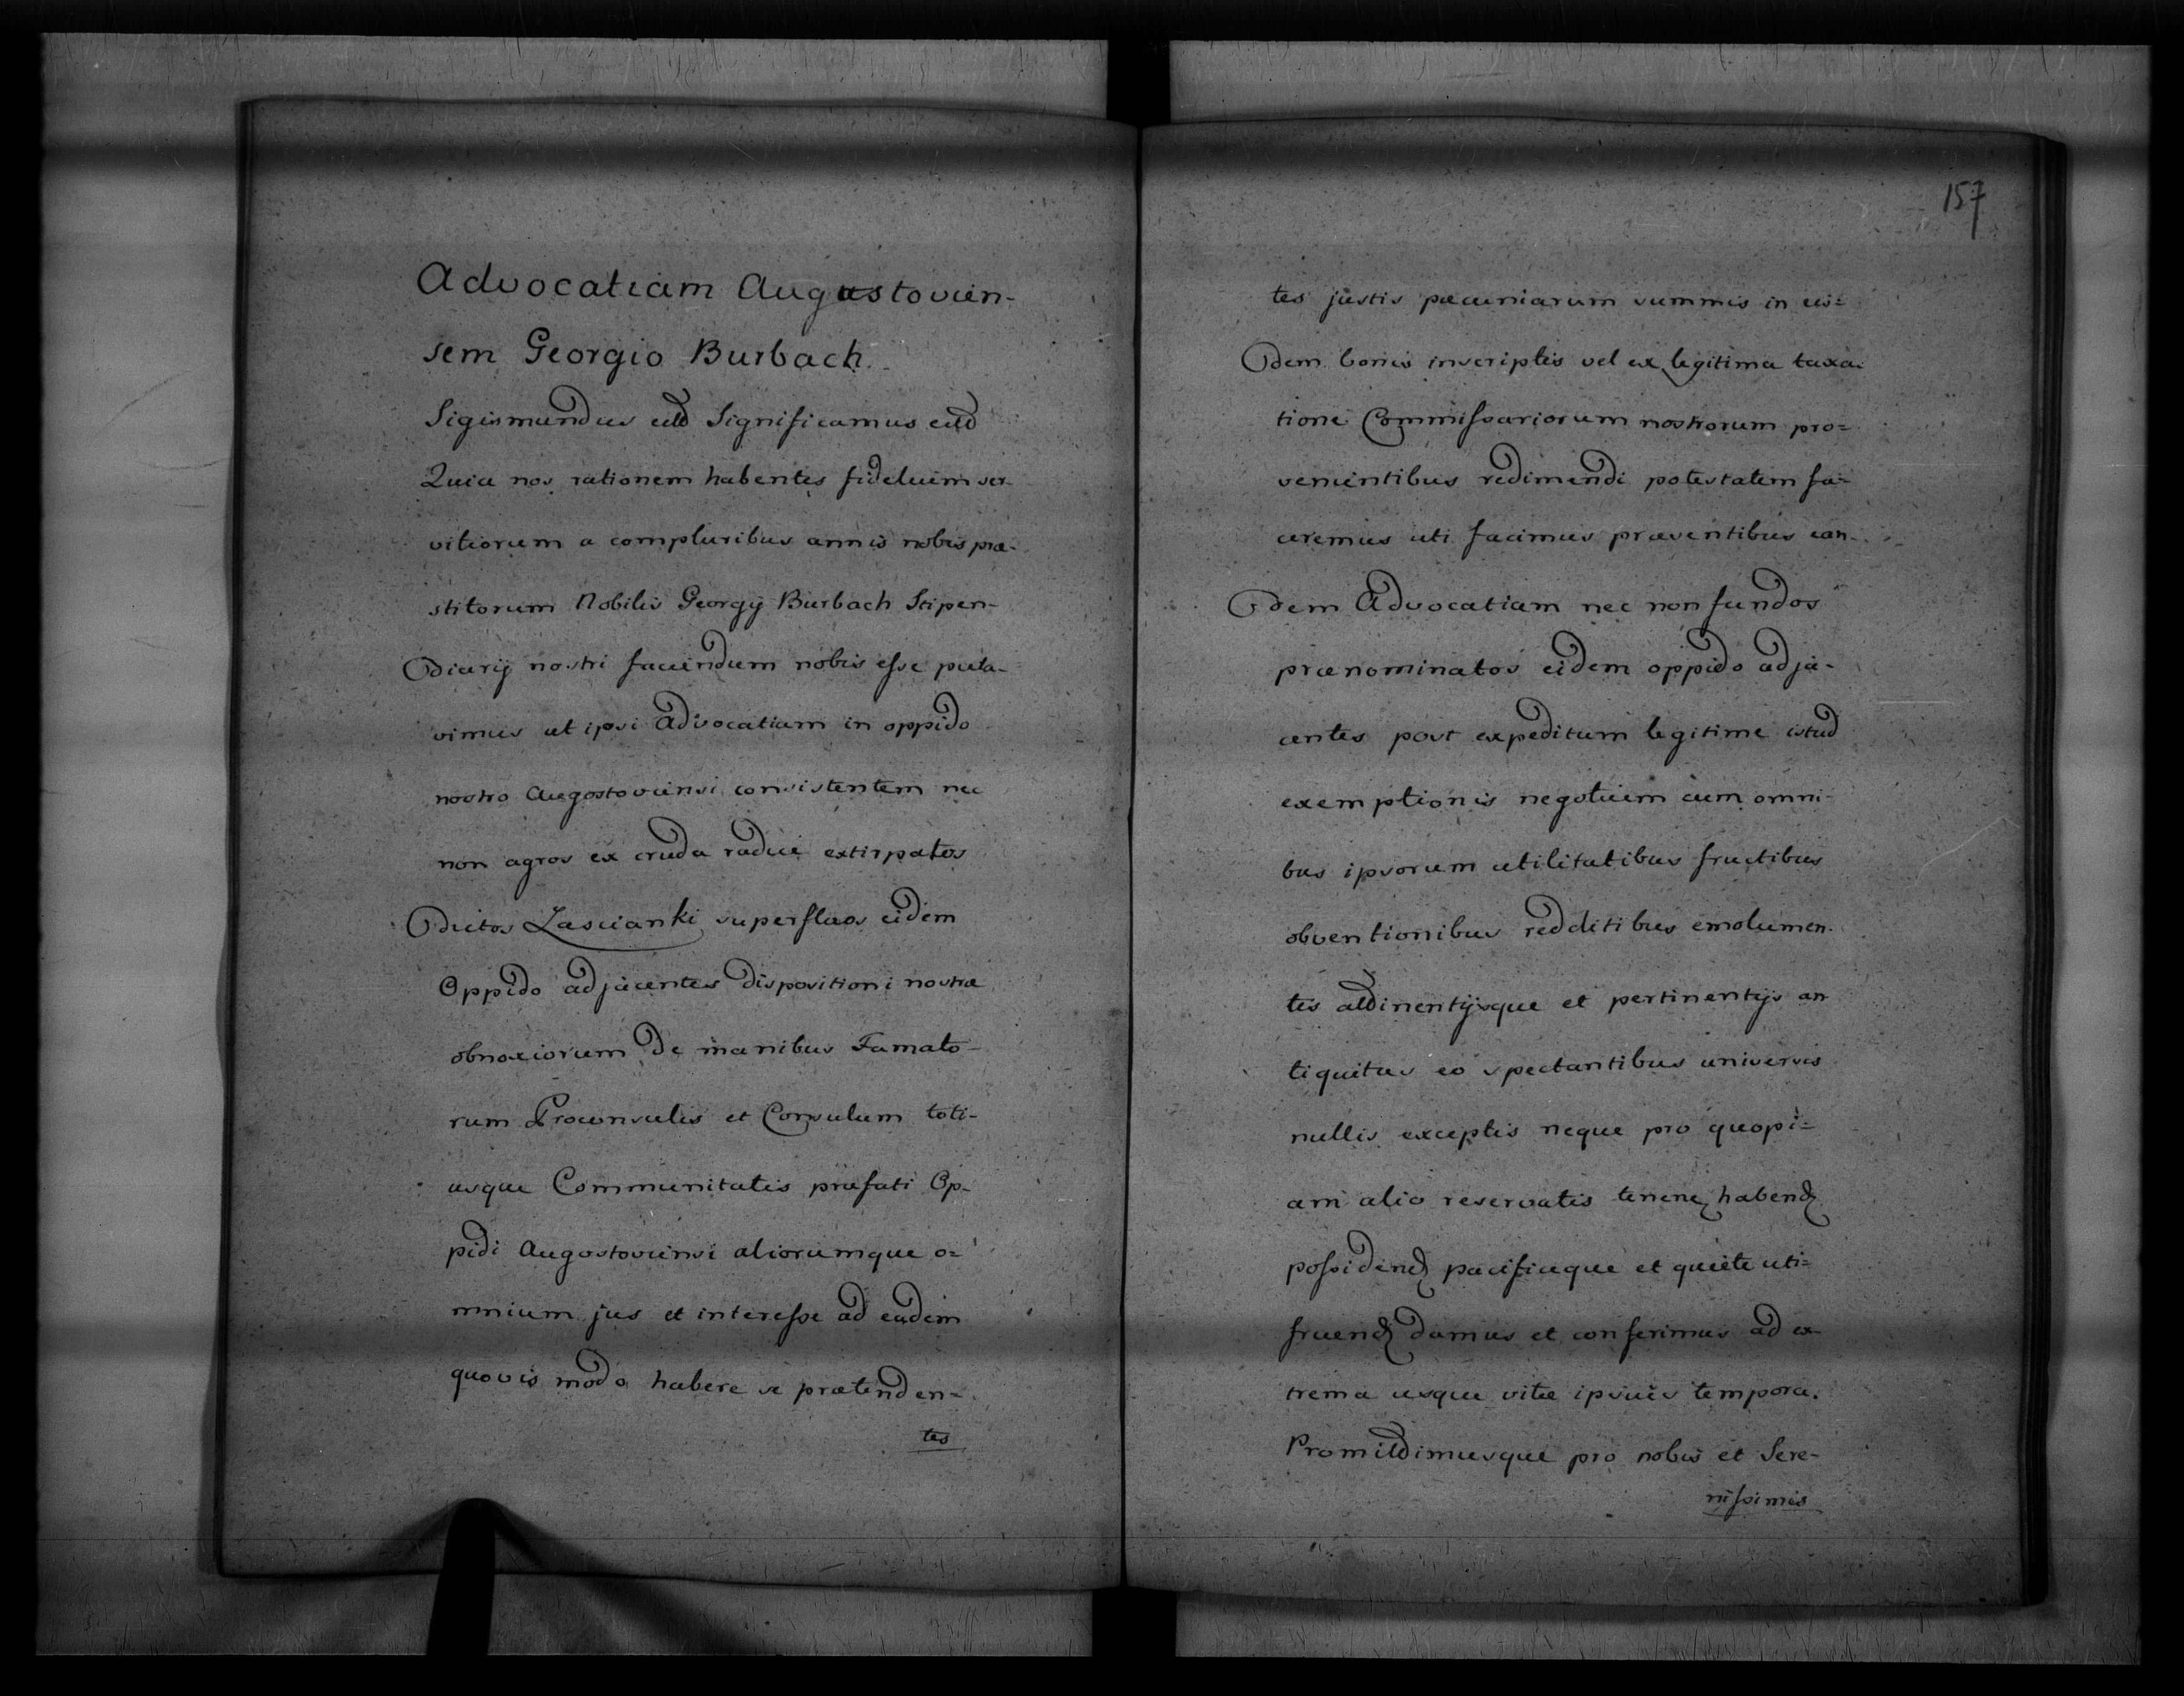 Advocatiam Augustovien-
sem Georgio Burbach.
Sigismundus etc Significamus etc
Quia nos rationem habentes fidelium ser-
vitiorum a compluribus annis nobis præ-
stitorum Nobilis Georgij Burbach Stipen-
diarij nostri faciendum nobis esse puta-
vimus ut ipsi advocatiam in oppido
nostro Augostoviensi consistentem nec
non agros ex cruda radice extirpatos
dictos Zascianki superfluos eidem
Oppido adjacentes dispositioni nostræ
obnoxiorum de manibus Famato-
rum Proconsulis et Consulum toti-
usque Communitatis præfati Op-
pidi Augostoviensi aliorumque o=
mnium jus et interesse ad eadem
quovis modo habere se prætenden=
tes
157
tes justis pæcuniarum summis in eis=
dem bonis inscriptis vel ex legitima taxa-
tione Commissariorum nostrorum pro=
venientibus redimendi potestatem fa=
ceremus uti facimus præsentibus ean-
dem Advocatiam nec non fundos
prænominatos eidem oppido adja-
centes post expeditum legitime istud
exemptionis negotium cum omni-
bus ipsorum utilitatibus fructibus
obventionibus redditibus emolumen-
tis attinentijsque et pertinentijs an
tiquitus eo spectantibus universis
nullis exceptis neque pro quopi=
am alio reservatis tenend habend
possidend pacificeque et quiete uti=
fruend damus et conferimus ad ex
trema usque vitæ ipsius tempora.
Promittimusque pro nobis et Sere-
nissimis